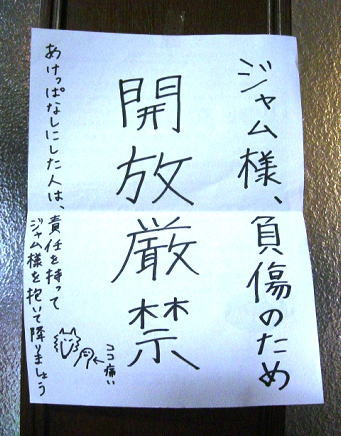 ジャム様、負傷のため
開放厳禁
あけっぱなしにした人は、責任を持って
ジャム様を抱いて降りましょう
ココ痛い